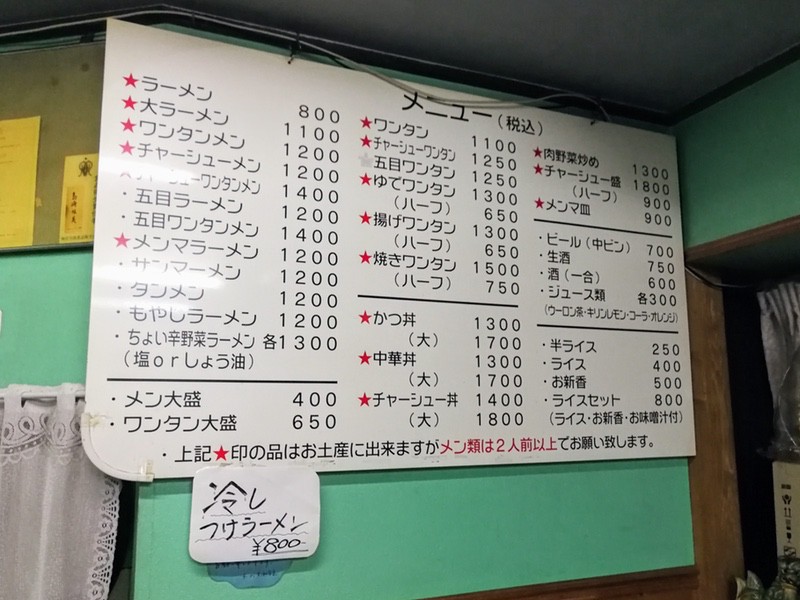 メニュー(税込)
★ラーメン 800
★大ラーメン 1100
★ワンタンメン 1200
★チャーシューメン 1200
★チャーシューワンタンメン 1400
・五目ラーメン 1200
・五目ワンタンメン 1400
★メンマラーメン 1200
・サンマーメン 1200
・タンメン 1200
・もやしラーメン 1200
・ちょい辛野菜ラーメン 各1300
(塩orしょう油)
・メン大盛 400
・ワンタン大盛 650
★ワンタン 1100
★チャーシューワンタン 1250
★五目ワンタン 1250
★ゆでワンタン 1300
(ハーフ) 650
★揚げワンタン 1300
(ハーフ) 650
★焼きワンタン 1500
(ハーフ) 750
★かつ丼 1300
(大) 1700
★中華丼 1300
(大) 1700
★チャーシュー丼 1400
(大) 1800
★肉野菜炒め 1300
★チャーシュー盛 1800
(ハーフ) 900
★メンマ皿 900
・ビール(中ビン) 700
・生酒 750
・酒(一合) 600
・ジュース類 各300
(ウーロン茶・キリンレモン・コーラ・オレンジ)
・半ライス 250
・ライス 400
・お新香 500
・ライスセット 800
(ライス・お新香・お味噌汁付)
・上記★印の品はお土産に出来ますがメン類は2人前以上でお願い致します。
冷し
つけラーメン
¥800-